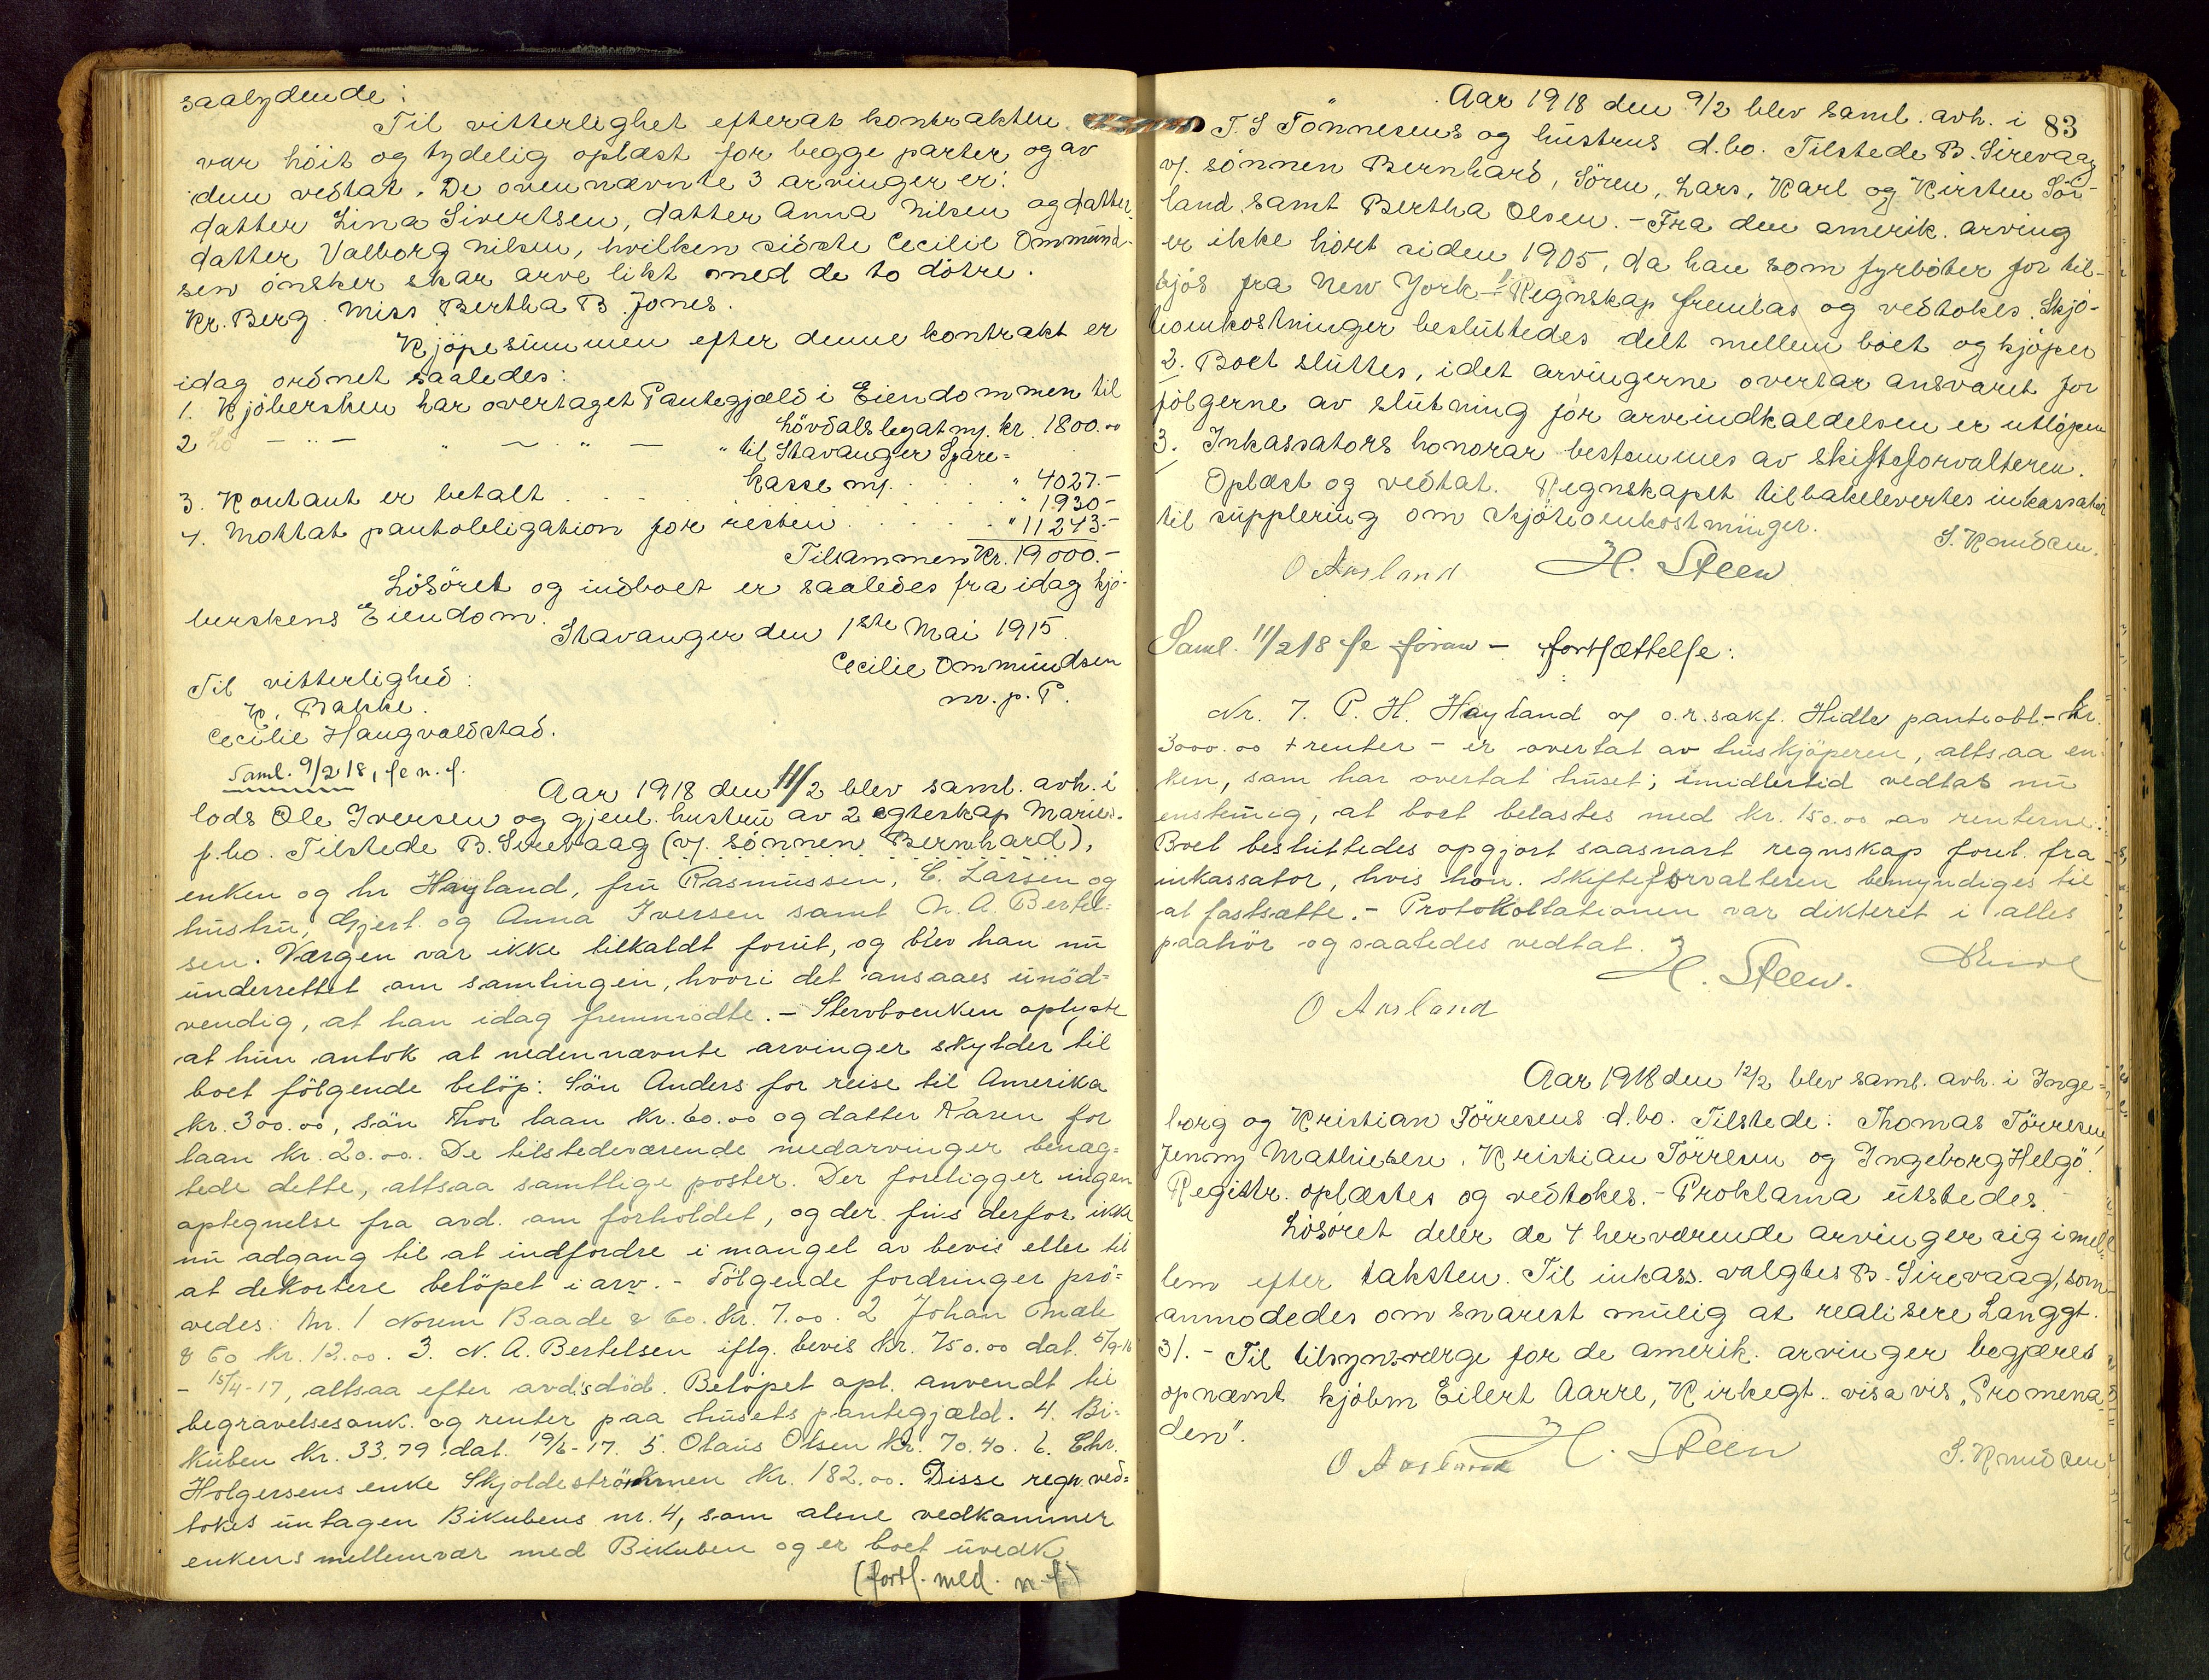 saalydende:
Til vitterlighet efterat kontrakten
var höit og tydelig oplæst for begge parter og av
dem vedtat. De ovennævnte 3 arvinger er:
datter Lina Sivertsen, datter Anna Nilsen og datter
datter Valborg Nilsen, hvilken sidste Cecilie Ommund-
sen önsker skar arve likt med de to dötre.
Kr. Berg. Miss Bertha B. Jones.
Kjöpesummen efter denne kontrakt er
idag ordnet saaledes:
1. Kjöbersken har overtaget Pantegjæld i Eiendommen til
Lövdals legat m/. kr. 1800.00
2 — " — " — " — " til Stavanger Spare=
kasse m/. . . " 4027.-
3. Kontant er betalt . . . . " 1930-
4. Mottat pantobligation for resten . . . " 11243.-
Tilsammen Kr. 19000.-
Lösöret og indboet er saaledes fra idag kjö-
berskens Eiendom.
Stavanger den 1ste Mai 1915.
Cecilie Ommundsen
m. p. P.
Til vitterlighed:
K. Bakke.
Cecilie Haugvaldstad.
Saml. 9/2 18, se n. s.
Aar 1918 den 11/2 blev saml. avh. i
lods Ole Iversen og gjenl. hustru av 2 egteskap Maries
f.bo. Tilstede B. Sirevaag (v/. sönnen Bernhard),
enken og hr Hayland, fru Rasmussen, C. Larsen og
hustru, Gjert. og Anna Iversen samt N. A. Bertel-
sen. Værgen var ikke tilkaldt forut, og blev han nu
underrettet om samlingen, hvori det ansaaes unöd=
vendig, at han idag fremmödte. – Stervboenken oplyste
at hun antok at nedennævnte arvinger skylder til
boet fölgende belöp: Sön Anders for reise til Amerika
kr. 300.00, sön Thor laan kr. 60.00 og datter Karen for
laan kr. 20.00. De tilstedeværende medarvinger benæg=
tede dette, altsaa samtlige poster. Der foreligger ingen
optegnelse fra avd. om forholdet, og der fins derfor ikke
nu adgang til at indfordre i mangel av bevis eller til
at dekortere belöpet i arv. – Fölgende fordringer prö=
vedes: Nr. 1 Norem Baade & Co. Kr. 7.00. 2 Johan Thale
& Co kr. 12.00. 3. N. A. Bertelsen iflg. bevis kr. 750.00 dat. 5/9-16
– 15/4-17, altsaa efter avd's död. Belöpet opl. anvendt til
begravelsesomk. og renter paa husets pantegjæld. 4. Bi=
kuben kr. 33.79 dat. 19/6-17. 5. Olaus Olsen Kr. 70.40. 6. Chr.
Holgersens enke Skjoldeströmmen kr. 182.00. Disse regn. ved=
tokes untagen Bikubens nr. 4, som alene vedkommer
enkens mellemvær med Bikuben og er boet uvedk.
(forts. med. n. s)
83
Aar 1918 den 9/2 blev saml. avh. i
T. S Tönnesens og hustrus d.bo. Tilstede B. Sirevaag
v/. sönnen Bernhard, Sören, Lars, Karl og Kirsten Sör-
land samt Bertha Olsen. – Fra den amerik. arving
er ikke hört siden 1905, da han som fyrböter for til-
sjös fra New York. – Regnskap fremlas og vedtokes. Skjö-
teomkostninger besluttedes delt mellem boet og kjöper
2. Boet sluttes, idet arvingerne overtar ansvaret for
fölgerne av slutning för arveindkaldelsen er utlöpen
3. Inkassators honorar bestemmes av skifteforvalteren.
Oplæst og vedtat. Regnskapet tilbakelevertes inkassator
til supplering om skjöteomkostninger.
S. Knudsen.
O Aasland H. Steen
Saml. 11/2 18 se foran – fortsættelse:
Nr. 7. P. H. Hayland v/ o.r.sakf. Hidle panteobl – kr.
3000.00 + renter – er overtat av huskjöperen, altsaa en=
ken, som har overtat huset; imidlertid vedtas nu
enstemig, at boet belastes med kr. 150.00 av renterne.
Boet besluttedes opgjort saasnart regnskap forel. fra
inkassator, hvis hon. skifteforvalteren bemyndiges til
at fastsætte. – Protokollationen var dikteret i alles
paahör og saaledes vedtat.
H. Steen.
O Aasland
Aar 1918 den 12/2 blev saml. avh. i Inge=
borg og Kristian Törresens d.bo. Tilstede: Thomas Törresen,
Jenny Mathiesen, Kristian Törresen og Ingeborg Helgö.
Registr. oplæstes og vedtokes. – Proklama utstedes
Lösöret deler de 4 herværende arvinger sig imel=
lem efter taksten. Til inkass. valgtes B. Sirevaag, som
anmodedes om snarest mulig at realisere Langgt.
31. – Til tilsynsværge for de amerik. arvinger begjæres
opnævnt kjöbm Eilert Aarre, Kirkegt. visavis „Promena
den".
O Aasland H. Steen S. Knudsen